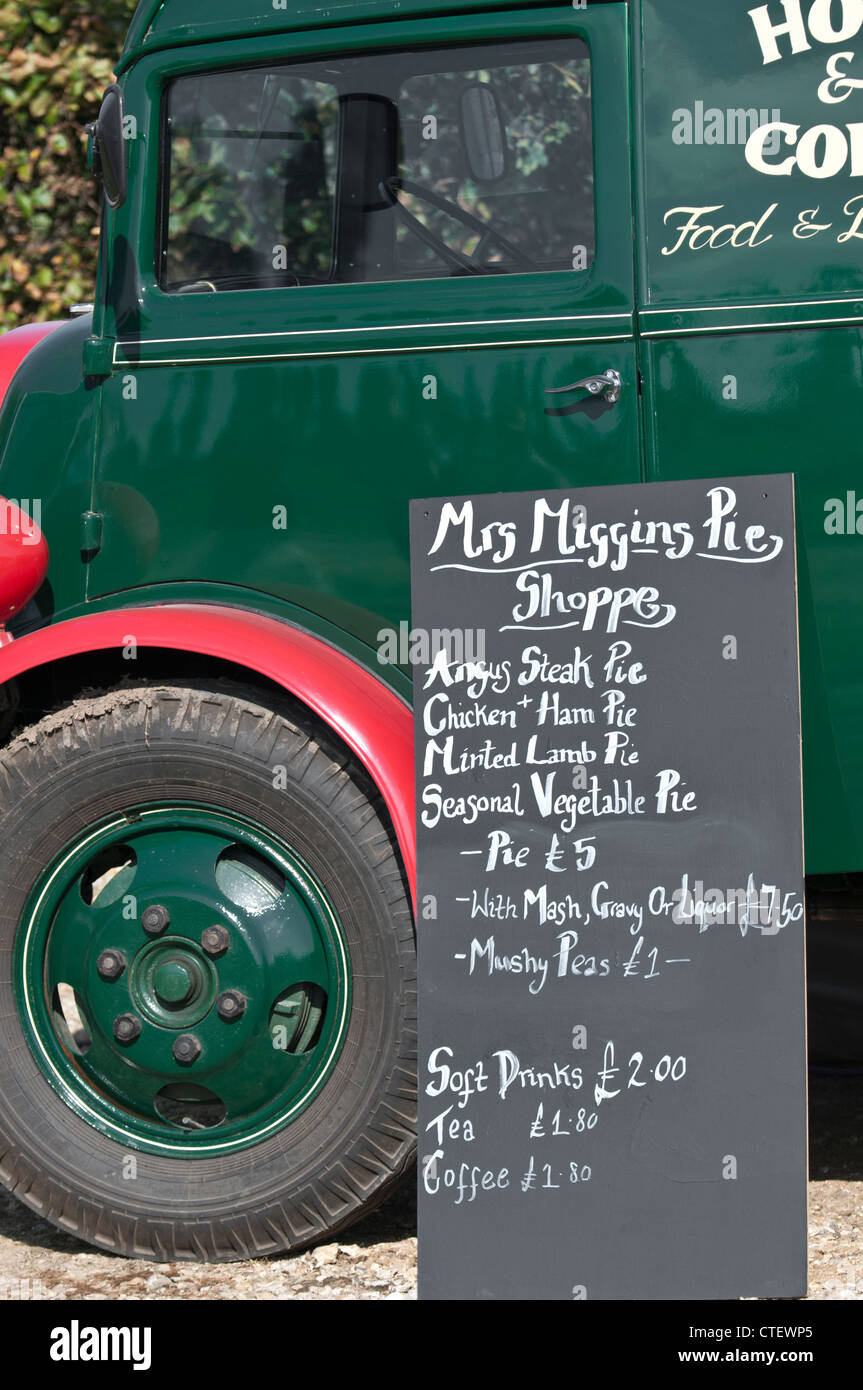 HO
&
CO
Food &
Mrs Miggins Pie
Shoppe
Angus Steak Pie
Chicken + Ham Pie
Minted Lamb Pie
Seasonal Vegetable Pie
- Pie £5
- With Mash, Gravy Or Liquor £7.50
- Mushy Peas £1 -
Soft Drinks £2.00
Tea £1.80
Coffee £1.80
alamy
Image ID: CTEWP5
www.alamy.com